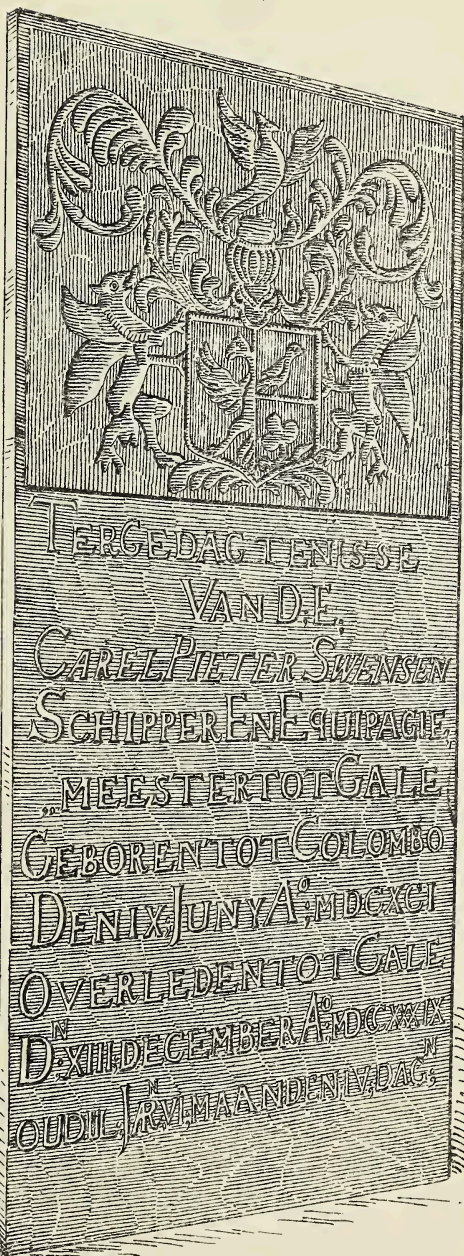 TERGEDAGTENISSE
VAN D.E.
CAREL PIETER SWENSEN
SCHIPPER EN EQUIPAGIE,
„MEESTER TOT GALE
GEBOREN TOT COLOMBO
DEN IX JUNY Aº: MDCXCI
OVERLEDEN TOT GALE
Dᴺ: XIII: DECEMBER Aº: MDCCXXXIX
OUD IIL: JᴺR. VI, MAANDEN IV, DAGᴺ;